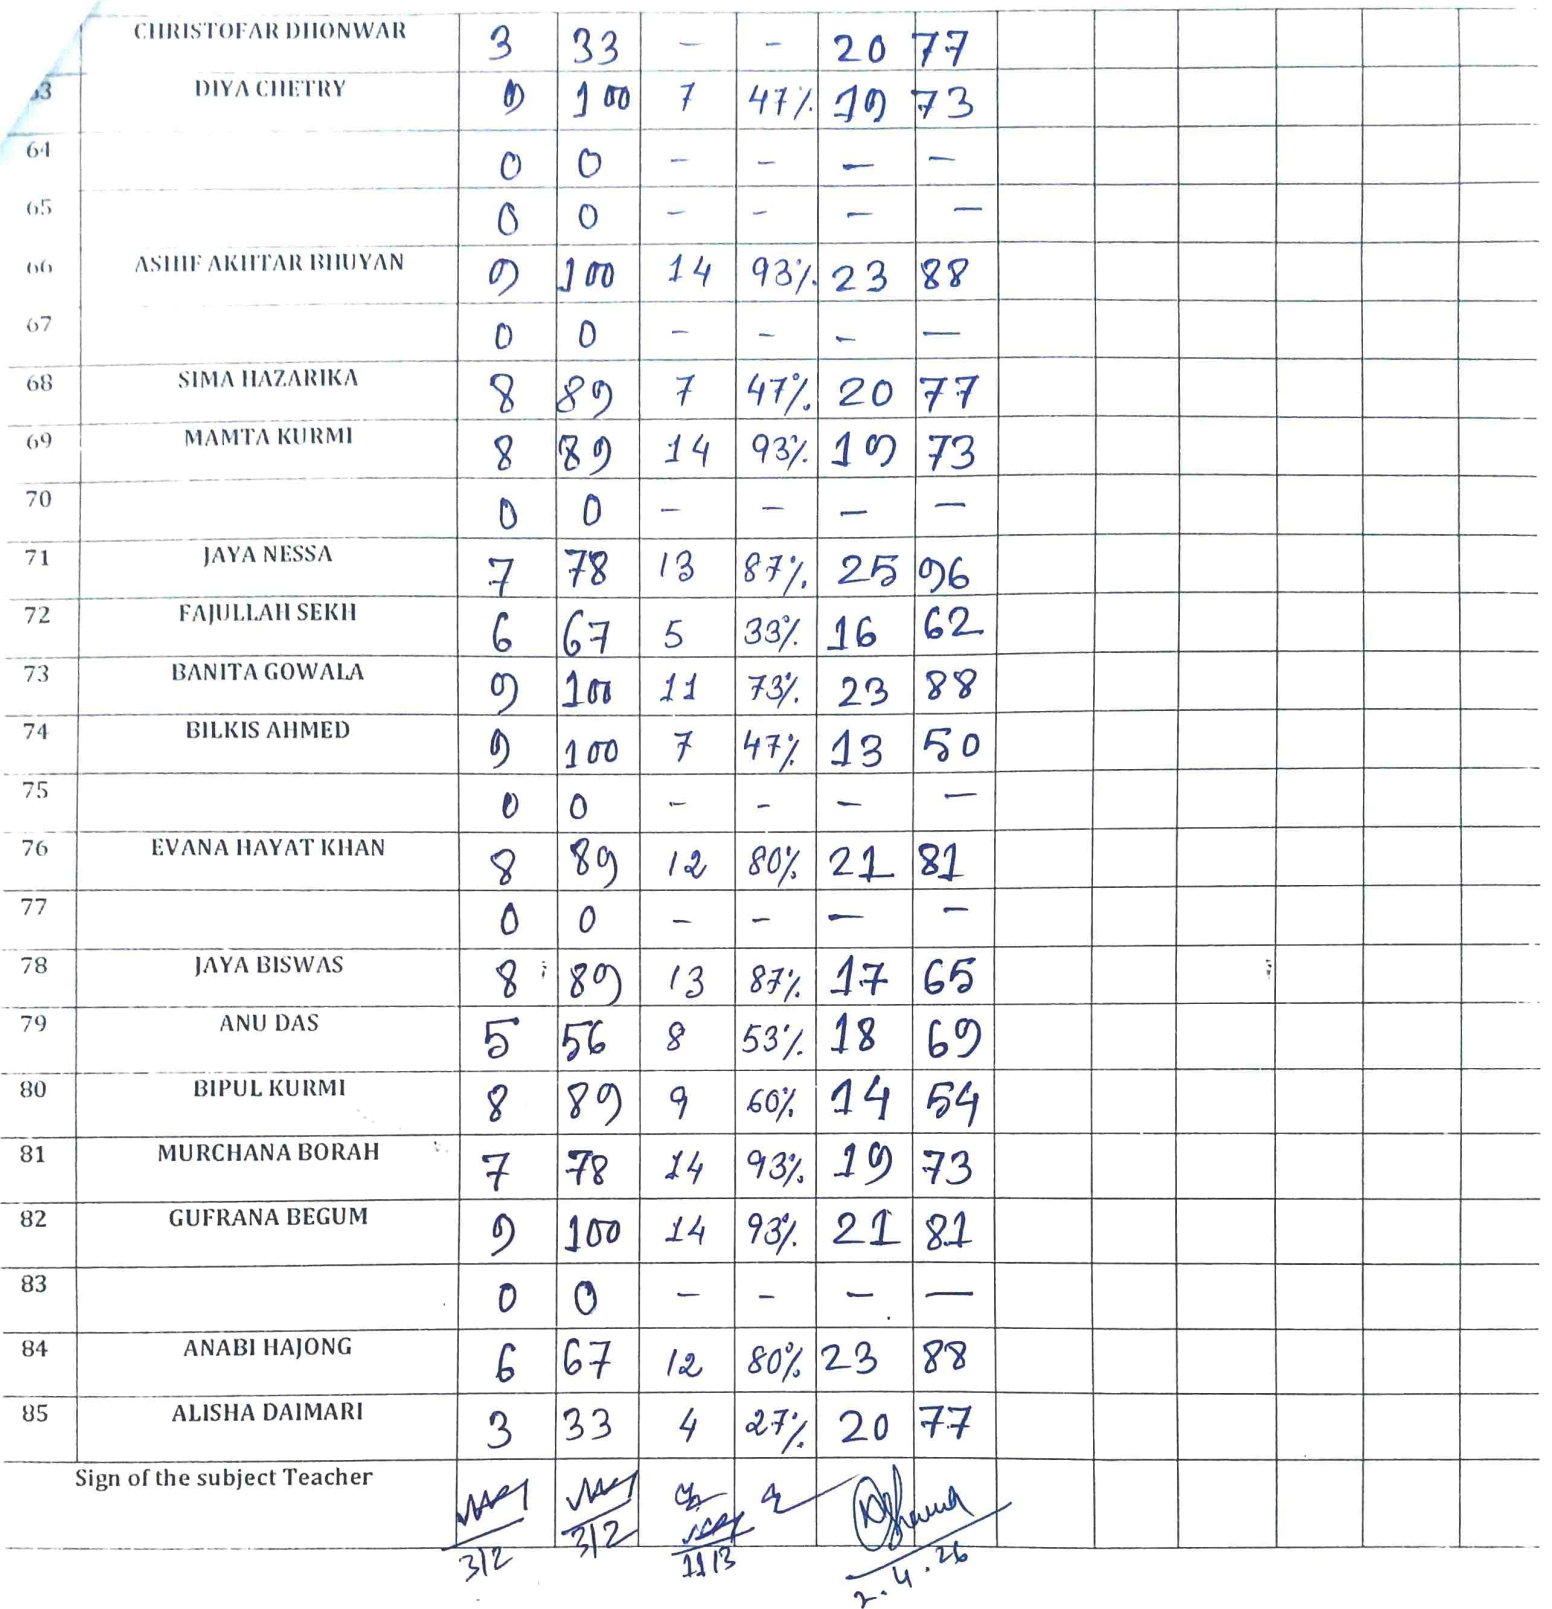 CHRISTOFAR DHONWAR 3 33 - - 20 77
63 DIYA CHETRY 9 100 7 47% 19 73
64 0 0 - - - -
65 0 0 - - - -
66 ASHIF AKHTAR BHUYAN 9 100 14 93% 23 88
67 0 0 - - - -
68 SIMA HAZARIKA 8 89 7 47% 20 77
69 MAMTA KURMI 8 89 14 93% 19 73
70 0 0 - - - -
71 JAYA NESSA 7 78 13 87% 25 96
72 FAJULLAH SEKH 6 67 5 33% 16 62
73 BANITA GOWALA 9 100 11 73% 23 88
74 BILKIS AHMED 9 100 7 47% 13 50
75 0 0 - - - -
76 EVANA HAYAT KHAN 8 89 12 80% 21 81
77 0 0 - - - -
78 JAYA BISWAS 8 89 13 87% 17 65
79 ANU DAS 5 56 8 53% 18 69
80 BIPUL KURMI 8 89 9 60% 14 54
81 MURCHANA BORAH 7 78 14 93% 19 73
82 GUFRANA BEGUM 9 100 14 93% 21 81
83 0 0 - - - -
84 ANABI HAJONG 6 67 12 80% 23 88
85 ALISHA DAIMARI 3 33 4 27% 20 77
Sign of the subject Teacher
3/2 3/2 11/3 2.4.26